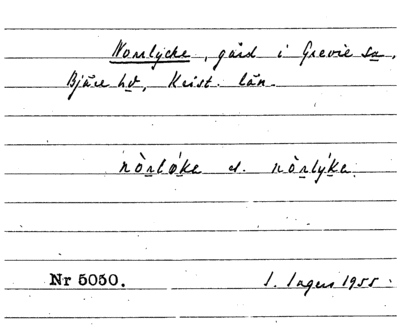 Norrlycke, gård i Grevie sn,
Bjäre hd, Krist. län.
nòrlǿka el. nòrlýka.
Nr 5050. 1955.